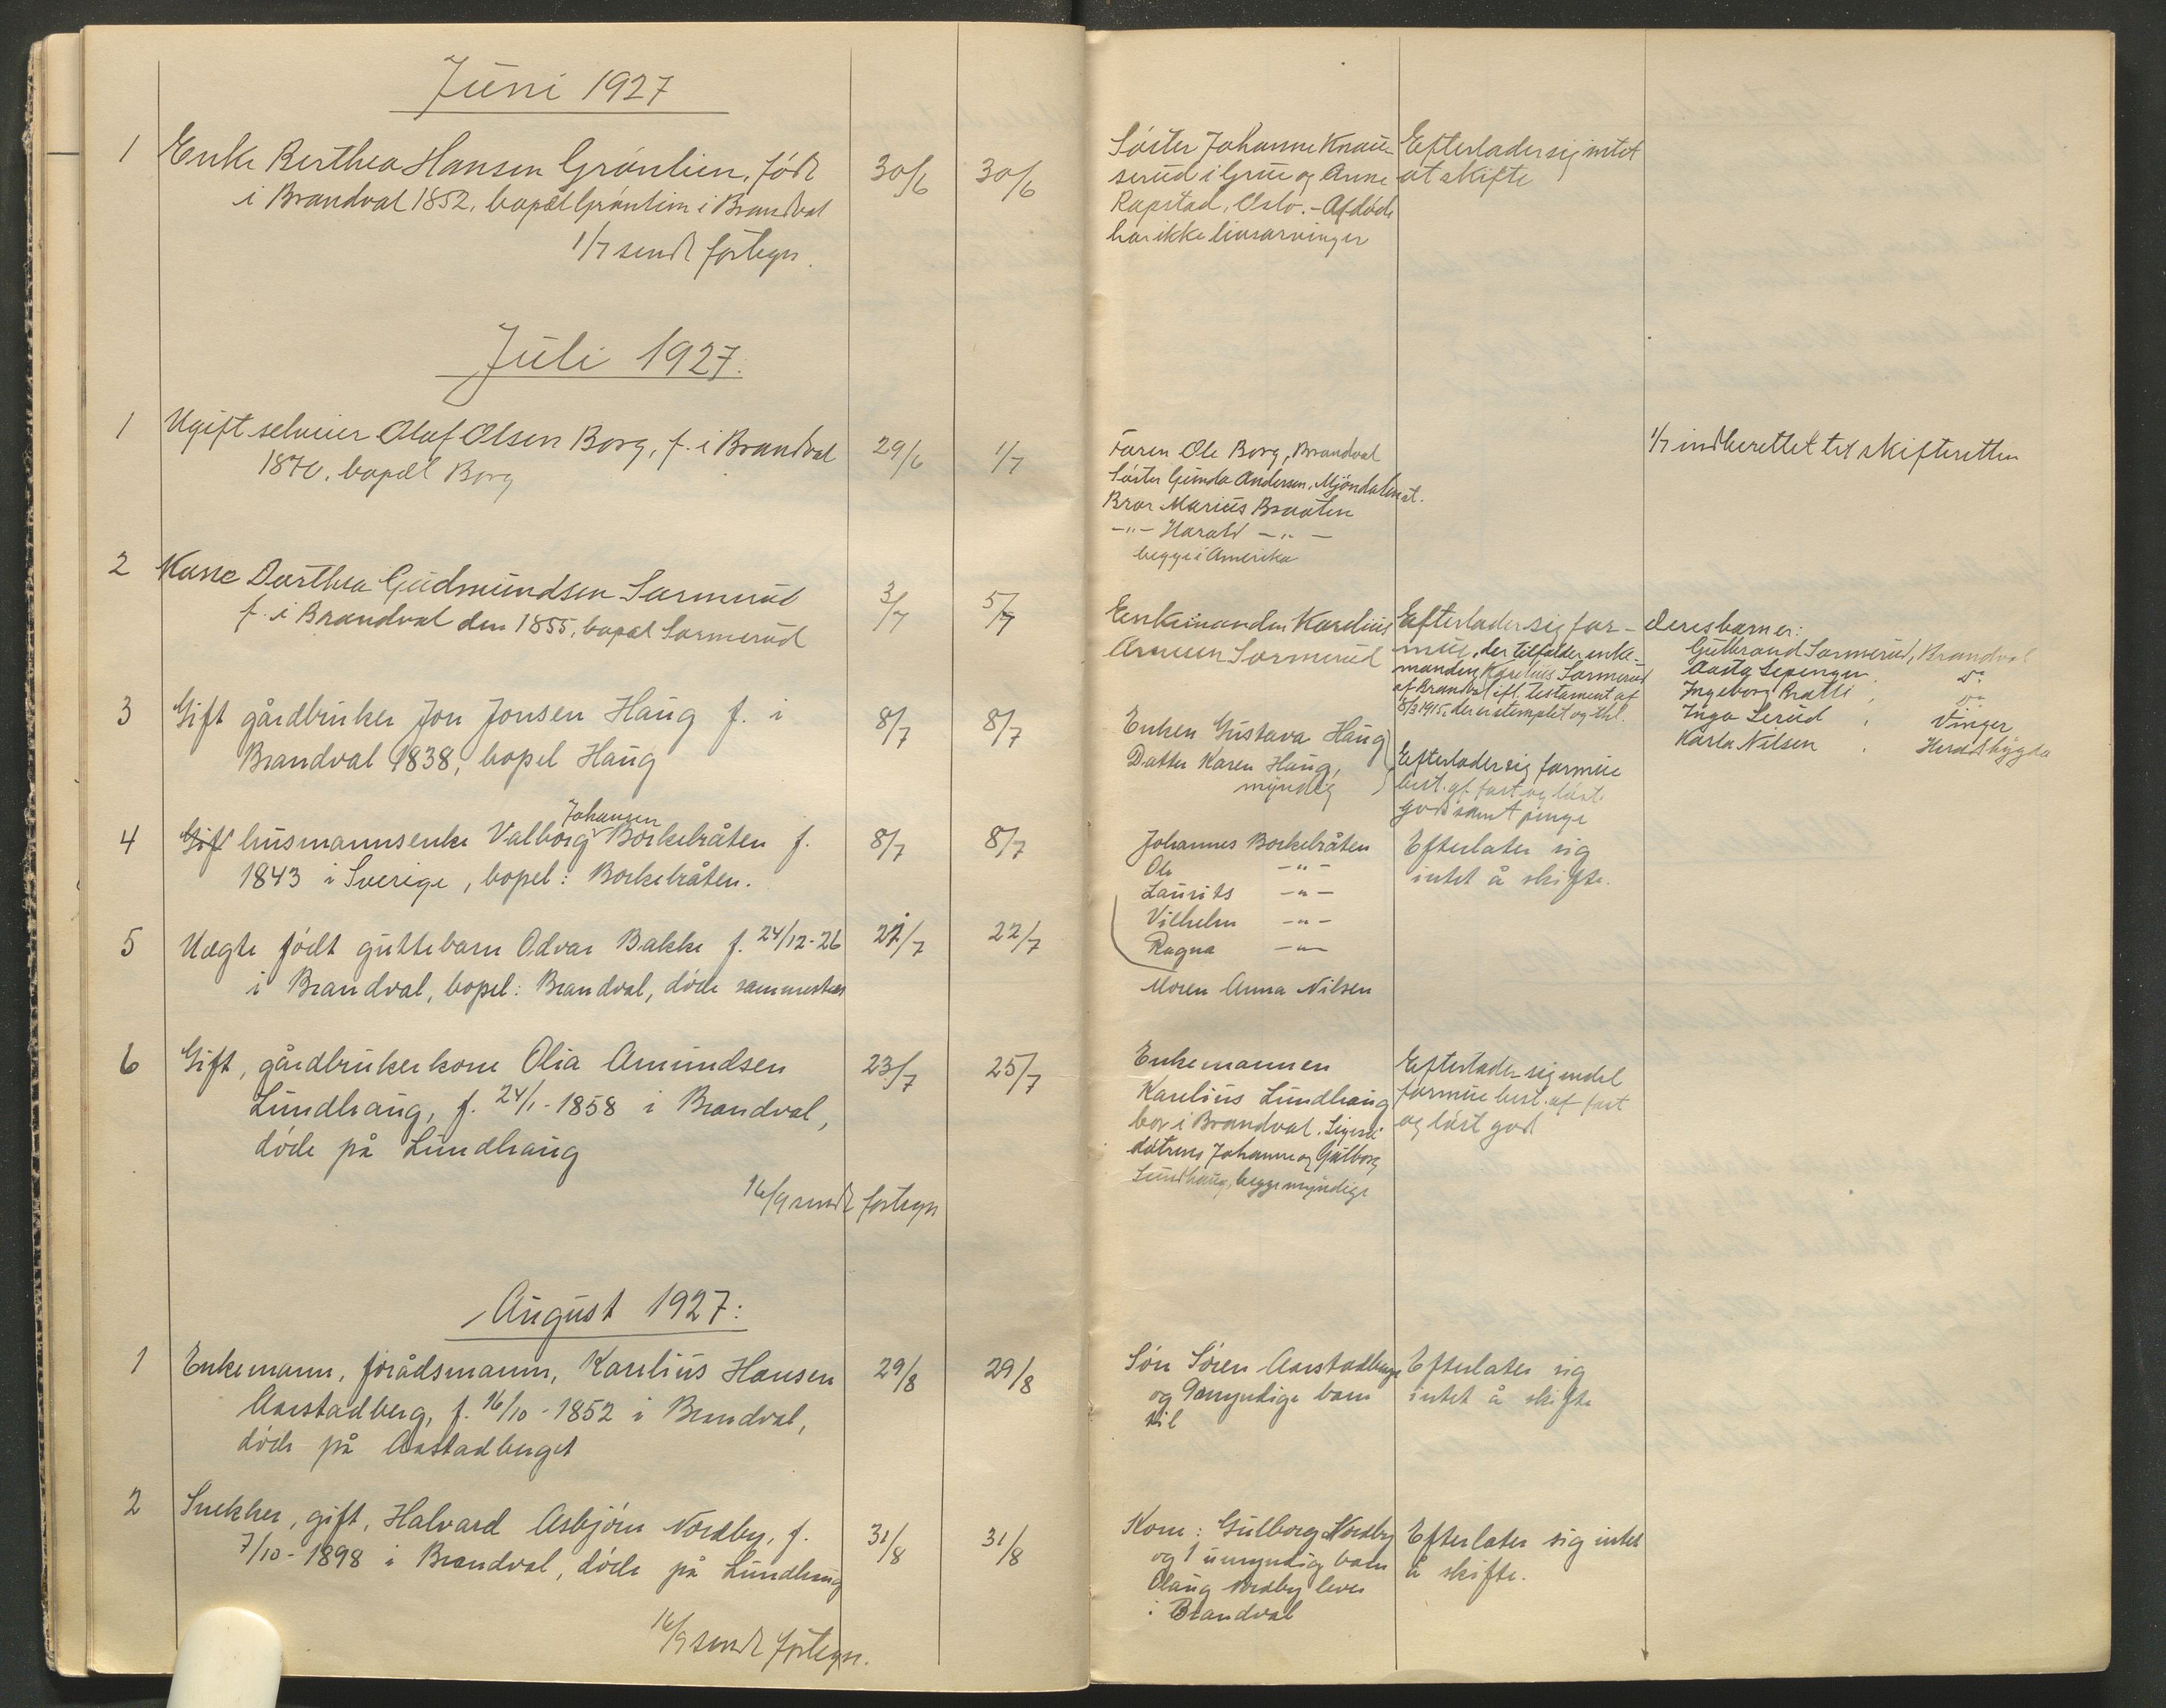 Juni 1927
1 Enke Berthea Hansen Grönlien, född 30/6 30/6
i Brandval 1852, bopæl Grönlien i Brandval
1/7 sendt fortegn.
Söster Johanne Knau-
serud i Grue og Anne
Rapstad, Oslo. - Afdöde
har ikke livsarvinger
Efterlader sig intet
at skifte
Juli 1927.
1 Ugift selveier Olaf Olsen Borg, f. i Brandval 29/6 1/7
1870. bopæl Borg
Faren Ole Borg, Brandval
Söster Gunda Andersen, Mjöndalen st.
Bror Marius Braaten
-"- Harald -"-
begge i Amerika
1/7 indberettet til skifteretten
2 Kone Dorthea Gudmundsen Sormerud 3/7 5/7
f. i Brandval den 1855, bopæl Sormerud
Enkemanden Karelius
Sormerud
Efterlader sig for-
mue, der tilfalder enke-
manden Karelius Sormerud
af Brandval ifl. Testament af
8/3 1915, der er stemplet og thl.
Deres barn er:
Gulbrand Sormerud, Brandval
Aasta Sepengen, do
Ingeborg , do
Inga Lerud, Vinger
Karla Nilsen,
3 Gift gårdbruker Jon Jonsen Haug f. i 8/7 8/7
Brandval 1838, bopel Haug
Enken Gustava Haug
Datter Karen Haug,
myndig
Efterlader sig formue
best. af fast og löst
gods samt penge
4 Gift husmannsenke Valborg Johansen Borkelråten f. 8/7 8/7
1843 i Sverige, bopel: Borkelråten.
Johannes Borkelråten
Ole -"-
Laurits -"-
Vilhelm -"-
Ragna -"-
Efterlater sig
intet å skifte.
5 Uegte födt guttebarn Odvar Bakke f. 24/12-26 21/7 22/7
i Brandval, bopel: Brandval, döde sammesteds
Moren Anna Nilsen
6 Gift, gårdbrukerkone Olia Amundsen 23/7 25/7
Lundhaug, f. 24/1-1858 i Brandval,
döde på Lundhaug
16/9 sendt fortegn
Enkemannen
Karelius Lundhaug
bor i Brandval. Ligeså
dötrene Johanne og Gulborg
Lundhaug, begge myndige
Efterlader sig endel
formue best. af fast
og löst gods
August 1927:
1 Enkemann, forådsmann, Karelius Hansen 29/8 29/8
Aarstadberg, f. 16/10-1852 i Brandval,
döde på Aarstadberget
Sön Sören Aarstadberget
og 9 myndige barn
til
Efterlater sig
intet å skifte
2 Snekker, gift, Halvard Asbjörn Nordby, f. 31/8 31/8
7/10-1898 i Brandval, döde på Lundhaug
16/9 sendt fortegn.
Kone: Gulborg Nordby
og 1 umyndig barn
Olaug Nordby lever
i Brandval
Efterlater sig intet
å skifte.